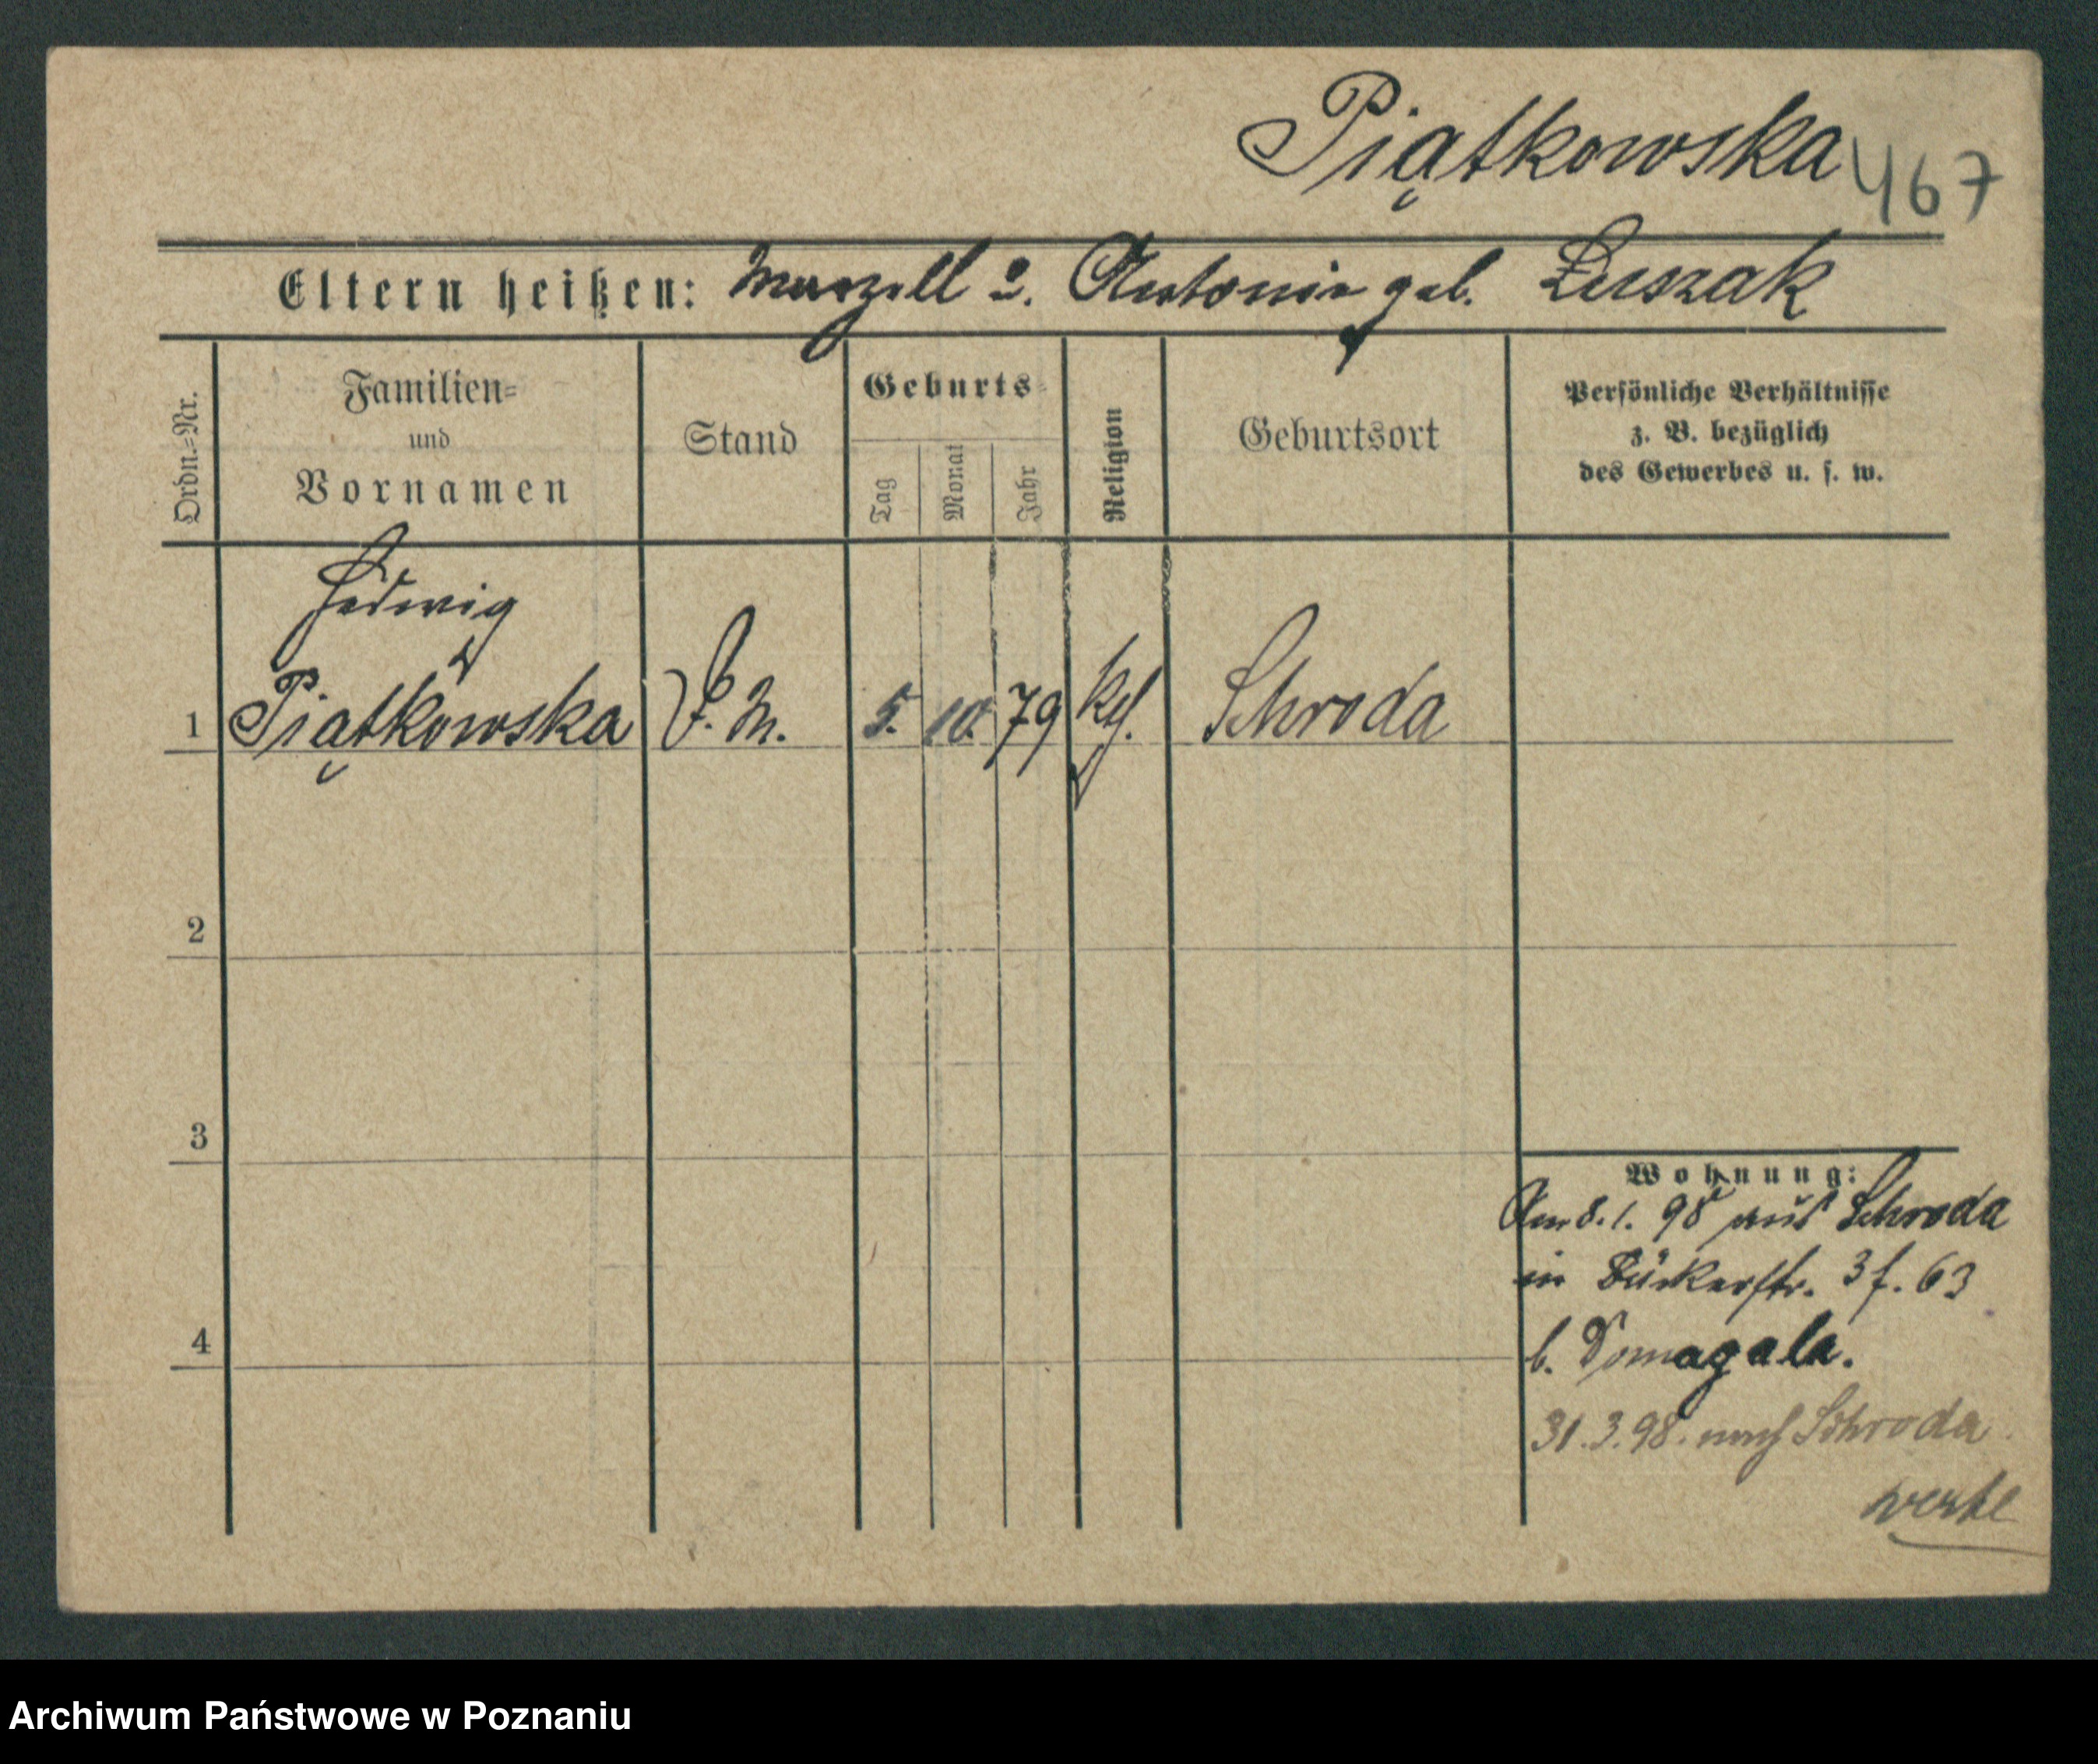 Piątkowska 467
Eltern heißen: Marzell u. Antonie geb. Łuszak
Ordn.=Nr.
Familien=
und
Vornamen
Stand
Geburts=
Tag
Monat
Jahr
Religion
Geburtsort
Persönliche Verhältnisse
z. B. bezüglich
des Gewerbes u. s. w.
Hedwig
1 Piątkowska D. M. 5. 10. 79 kth. Schroda
2
3
Wohnung:
Am 8.1. 98 aus Schroda
in Bäckerstr. 3 f. 63
4
b. Domagala.
31.3.98. nach Schroda
Archiwum Państwowe w Poznaniu